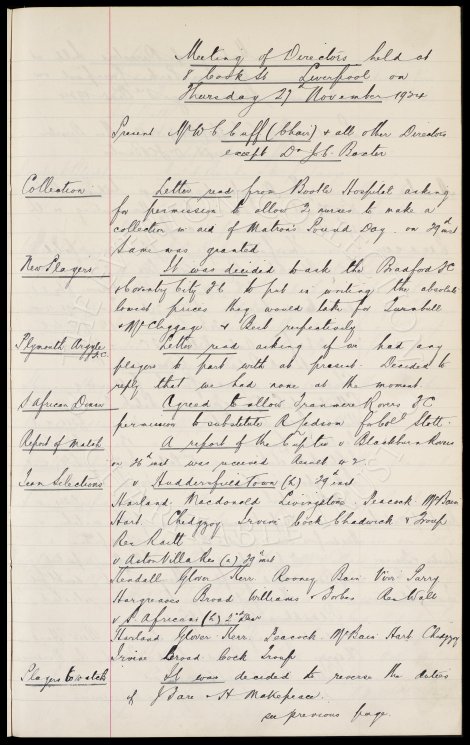 Meeting of Directors held at
8 Cook St Liverpool on
Thursday 27th November 1924
Present Mr W. C. Cuff (Chair) & all other Directors
except Dr J. C. Baxter
Collection
Letter read from Bootle Hospital asking
for permission to allow 2 nurses to make a
collection in aid of Matron's Pound Day on 29th inst
Same was granted
New Players
It was decided to ask the Bradford FC
& Coventry City FC to put in writing the absolute
lowest prices they would take for Turnbull
& McCluggage & Best respectively
Plymouth Argyle FC
Letter read asking if we had any
players to part with at present. Decided to
reply that we had none at the moment.
S African Dinner
Agreed to allow Tranmere Rovers FC
permission to substitute
Report of Match
A report of the Cup tie v Blackburn Rovers
on 26th inst was received Result 2.2.
Team Selections
v Huddersfield Town (h) 29th inst
Harland Macdonald Livingstone Peacock McBain
Hart Chedgzoy Irvine Cock Chadwick & Troup
Res Raitt
v Aston Villa Res (a) 29th inst
Kendall Glover Kerr Rooney Bain Virr Parry
Hargreaves Broad Williams & Forbes Res Wall
v S Africans (h) 2nd Dec
Harland Glover Kerr Peacock McBain Hart Chedgzoy
Irvine Broad Cock Troup
Players to watch
It was decided to reverse the duties
of J Bare & H Makepeace.
see previous page.